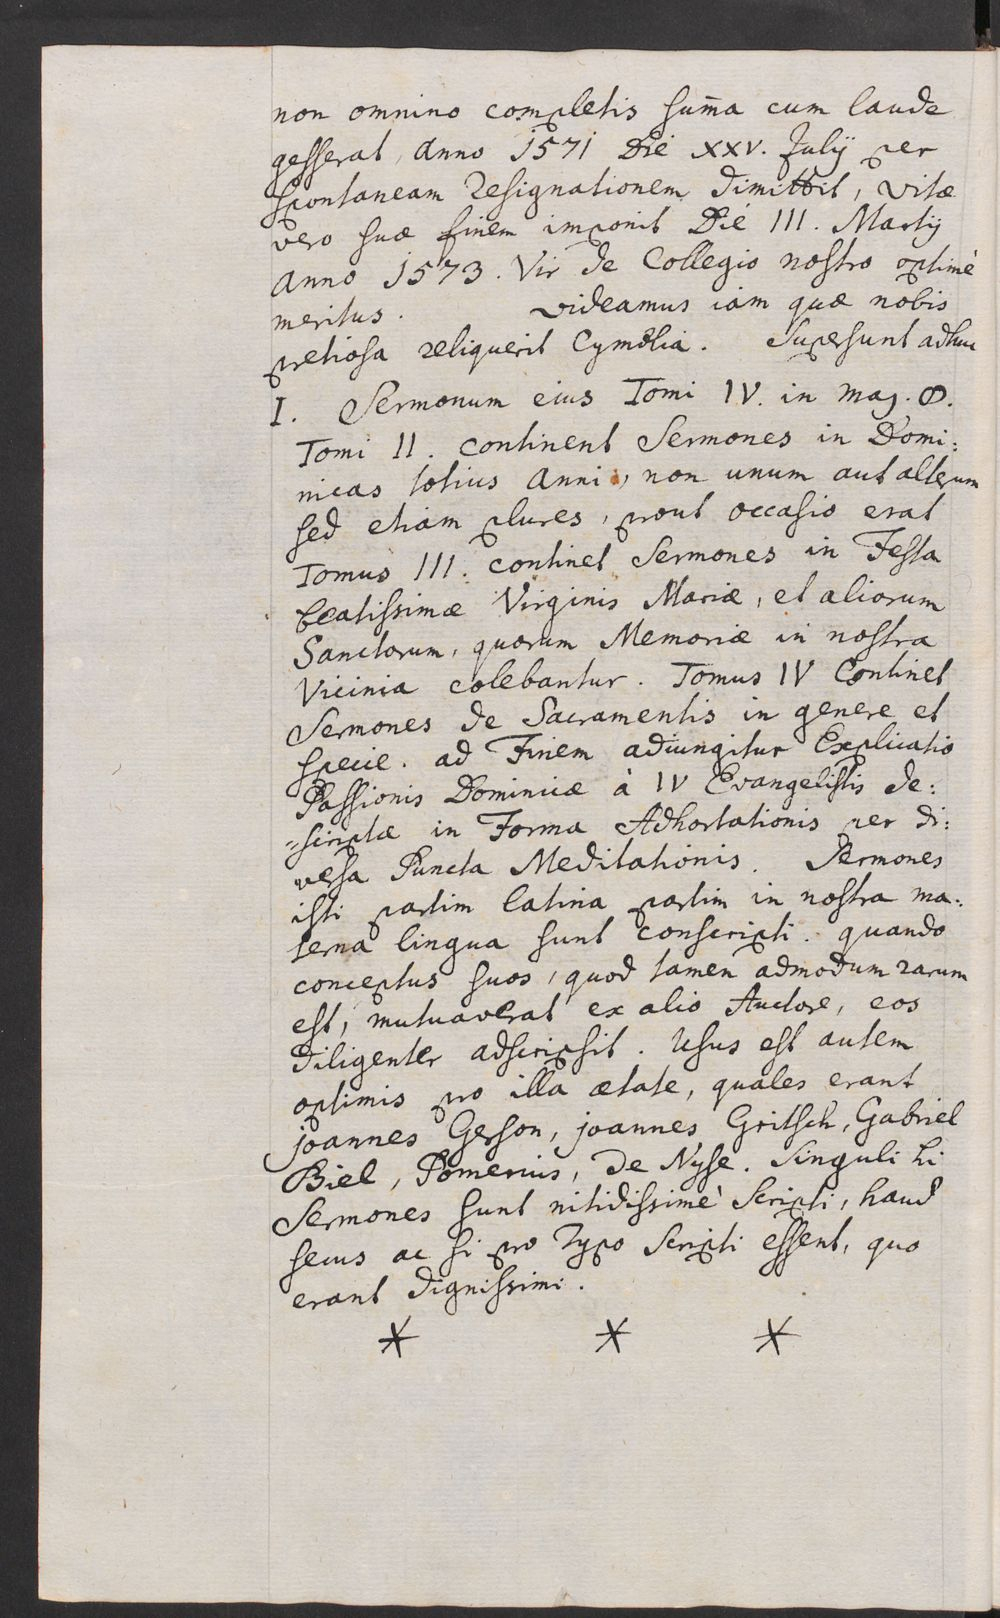 non omnino completis sum̄a cum laude
gesserat, Anno 1571 Die XXV. Julij per
spontaneam Resignationem dimittit, vitæ
vero suæ finem imponit Die III. Martij
Anno 1573. Vir de Collegio nostro optimè
meritus. videamus iam quæ nobis
pretiosa reliquerit Cymelia. Supersunt adhuc
I. Sermonum eius Tomi IV. in maj. 8.
Tomi II. continent Sermones in Domi:
nicas totius Anni, non unum aut alterum
sed etiam plures, prout occasio erat
Tomus III. continet Sermones in Festa
beatissimæ Virginis Mariæ, et aliorum
Sanctorum, quorum Memoriæ in nostra
Vicinia colebantur. Tomus IV Continet
Sermones de Sacramentis in genere et
specie. ad Finem adiungitur Explicatio
Passionis Dominicæ à IV Evangelistis de:
=scriptæ in Forma Adhortationis per di:
versa Puncta Meditationis. Sermones
isti partim latina partim in nostra ma:
terna lingua sunt conscripti. quando
conceptus suos, quod tamen admodum rarum
est, mutuaverat ex alio Auctore, eos
diligenter adscripsit. Usus est autem
optimis pro illa ætate, quales erant
joannes Gerson, joannes Gritsch, Gabriel
Biel, Pomerius, de Nyse. Singuli hi
Sermones sunt nitidissimè Scripti, haud
secus ac si pro Typo Scripti essent, quo
erant dignissimi.
* * *